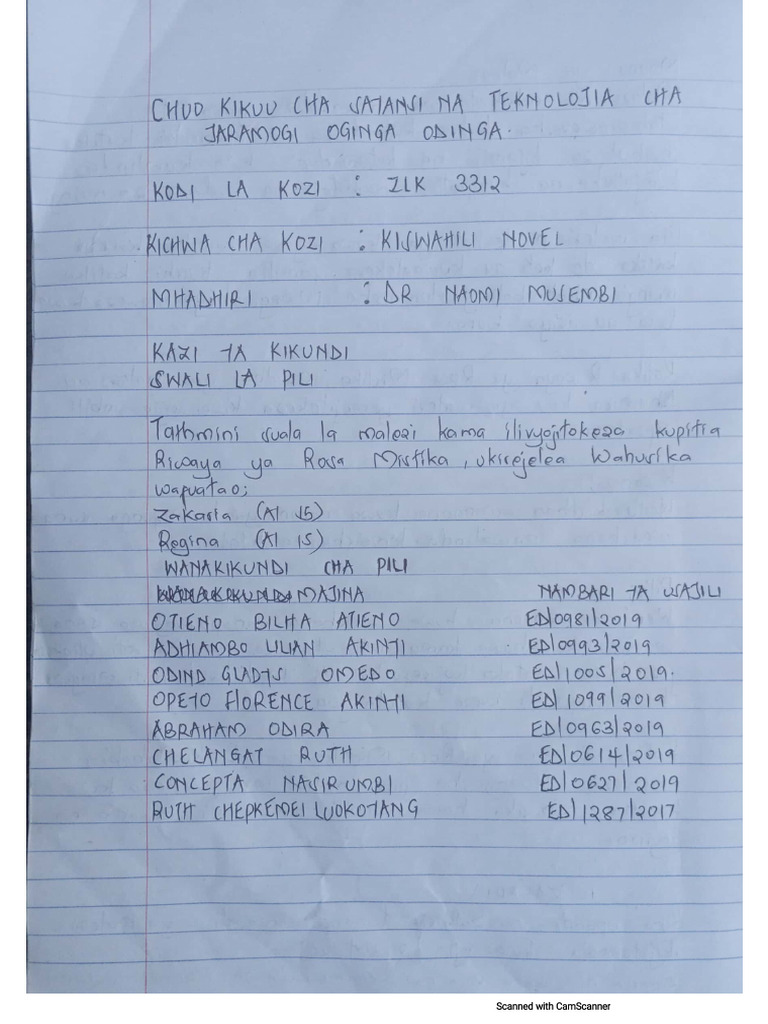 CHUO KIKUU CHA SAYANSI NA TEKNOLOJIA CHA
JARAMOGI OGINGA ODINGA.
KODI LA KOZI : ZLK 3312
KICHWA CHA KOZI : KISWAHILI NOVEL
MHADHIRI : DR NAOMI MUSEMBI
KAZI YA KIKUNDI
SWALI LA PILI
Tathmini suala la malezi kama ilivyojitokeza kupitia
Riwaya ya Rosa Mistika, ukirejelea Wahusika
wafuatao;
Zakaria (Al 15)
Regina (Al 15)
WANAKIKUNDI CHA PILI
MAJINA NAMBARI YA USAJILI
OTIENO BILHA ATIENO ED/0981/2019
ADHIAMBO LILIAN AKINYI ED/0993/2019
ODIND GLADYS OMEDO ED/1005/2019.
OPEYO FLORENCE AKINYI ED/1099/2019
ABRAHAM ODIRA ED/0963/2019
CHELANGAT RUTH ED/0614/2019
CONCEPTA NASIRUMBI ED/0627/2019
RUTH CHEPKEMEI ED/1287/2017
Scanned with CamScanner